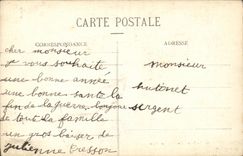 CARTE POSTALE
CORRESPONDANCE
ADRESSE
cher monsieur
je vous souhaite
une bonne année
une bonne santé la
fin de la guerre bonjour
de tout la famille
un gros baiser de
julienne Cresson
monsieur
hutinet
sergent